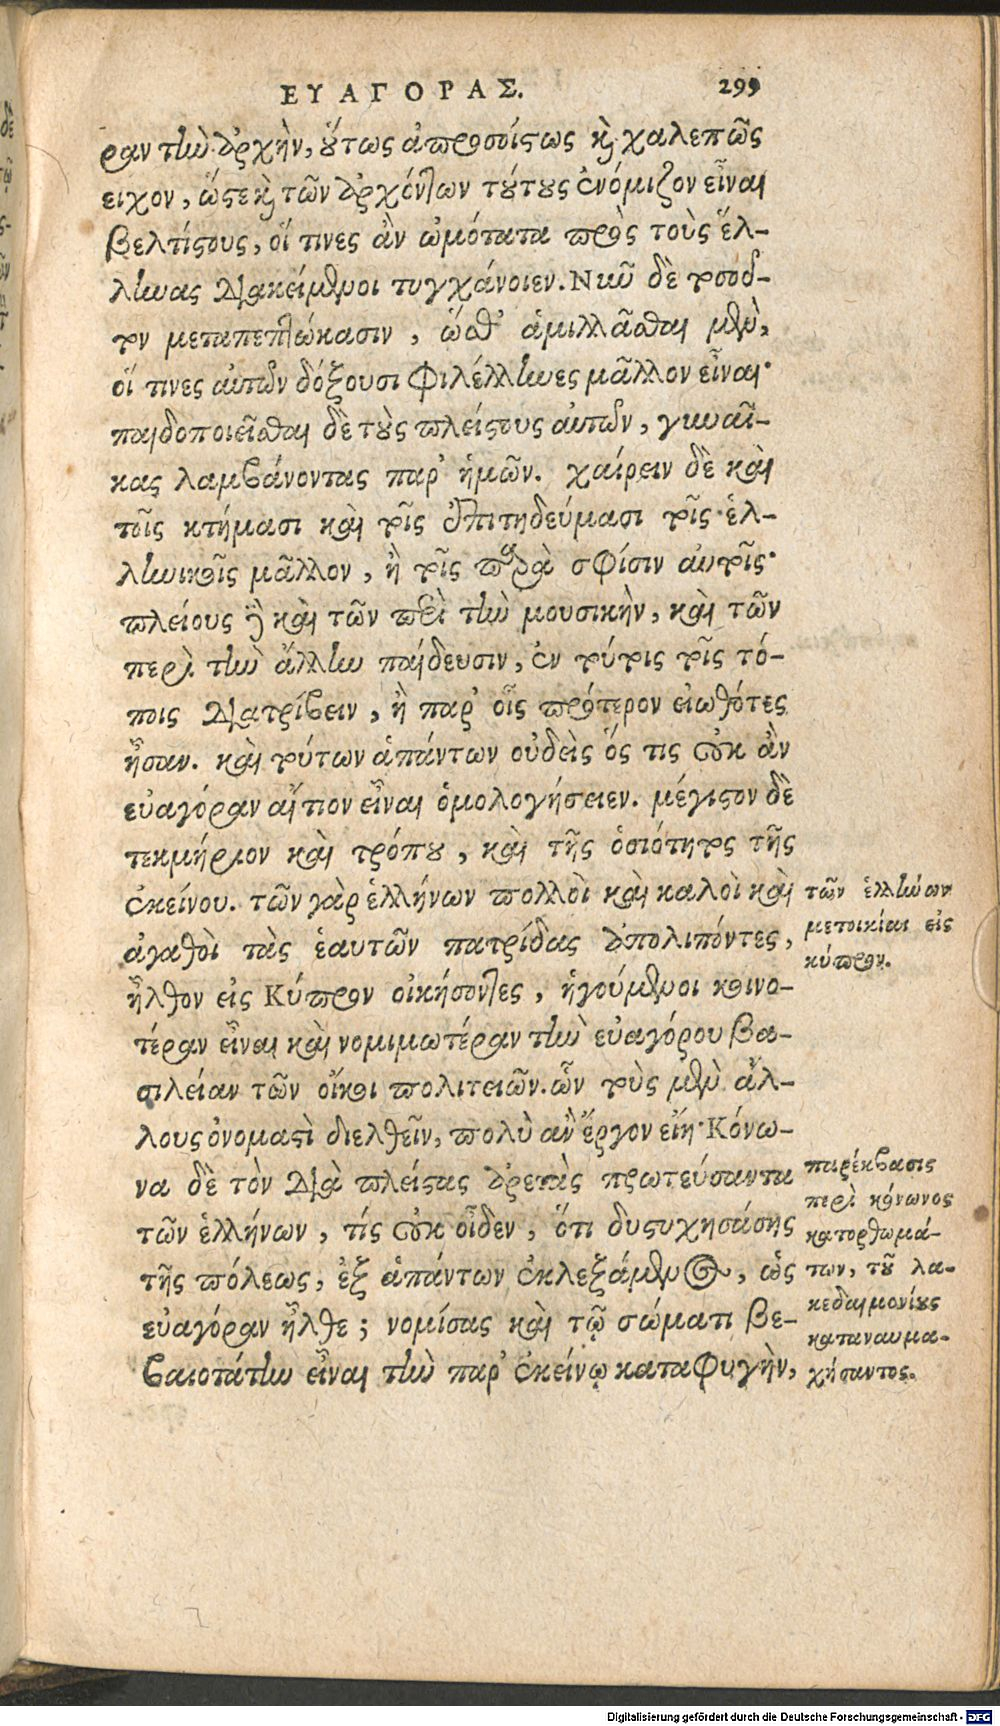 ΕΥΑΓΟΡΑΣ. 299
ραν τὴν ἀρχὴν, οὕτως ἀπροσοίστως καὶ χαλεπῶς
εἶχον, ὥστε καὶ τῶν ἀρχόντων τούτους ἐνόμιζον εἶναι
βελτίστους, οἵ τινες ἂν ὠμότατα πρὸς τοὺς ἕλ-
ληνας διακείμενοι τυγχάνοιεν. Νῦν δὲ τοσοῦ-
τον μεταπεπτώκασιν, ὥσθ' ἁμιλλᾶσθαι μὲν,
οἵ τινες αὐτῶν δόξουσι φιλέλληνες μᾶλλον εἶναι·
παιδοποιεῖσθαι δὲ τοὺς πλείστους αὐτῶν, γυναῖ-
κας λαμβάνοντας παρ' ἡμῶν. χαίρειν δὲ καὶ
τοῖς κτήμασι καὶ τοῖς ἐπιτηδεύμασι τοῖς ἑλ-
ληνικοῖς μᾶλλον, ἢ τοῖς παρὰ σφίσιν αὐτοῖς·
πλείους δὲ καὶ τῶν περὶ τὴν μουσικὴν, καὶ τῶν
περὶ τὴν ἄλλην παίδευσιν, ἐν τούτοις τοῖς τό-
ποις διατρίβειν, ἢ παρ' οἷς πρότερον εἰωθότες
ἦσαν. καὶ τούτων ἁπάντων οὐδεὶς ὅς τις οὐκ ἂν
εὐαγόραν αἴτιον εἶναι ὁμολογήσειεν. μέγιστον δὲ
τεκμήριον καὶ τρόπου, καὶ τῆς ὁσιότητος τῆς
ἐκείνου. τῶν γὰρ ἑλλήνων πολλοὶ καὶ καλοὶ καὶ
ἀγαθοὶ τὰς ἑαυτῶν πατρίδας ἀπολιπόντες,
ἦλθον εἰς Κύπρον οἰκήσοντες, ἡγούμενοι κοινο-
τέραν εἶναι καὶ νομιμωτέραν τὴν εὐαγόρου βα-
σιλείαν τῶν οἴκοι πολιτειῶν. ὧν τοὺς μὲν ἄλ-
λους ὀνομαστὶ διελθεῖν, πολὺ ἂν ἔργον εἴη· Κόνω-
να δὲ τὸν διὰ πλείστας ἀρετὰς πρωτεύσαντα
τῶν ἑλλήνων, τίς οὐκ οἶδεν, ὅτι δυστυχησάσης
τῆς πόλεως, ἐξ ἁπάντων ἐκλεξάμενος, ὡς
εὐαγόραν ἦλθε; νομίσας καὶ τῷ σώματι βε-
βαιοτάτην εἶναι τὴν παρ' ἐκείνῳ καταφυγὴν,
τῶν ἑλλήνων
μετοικίαι εἰς
κύπρον.
παρέκβασις
περὶ κόνωνος
κατορθωμά-
των, τοῦ λα-
κεδαιμονίους
καταναυμα-
χήσαντος.
Digitalisierung gefördert durch die Deutsche Forschungsgemeinschaft - DFG